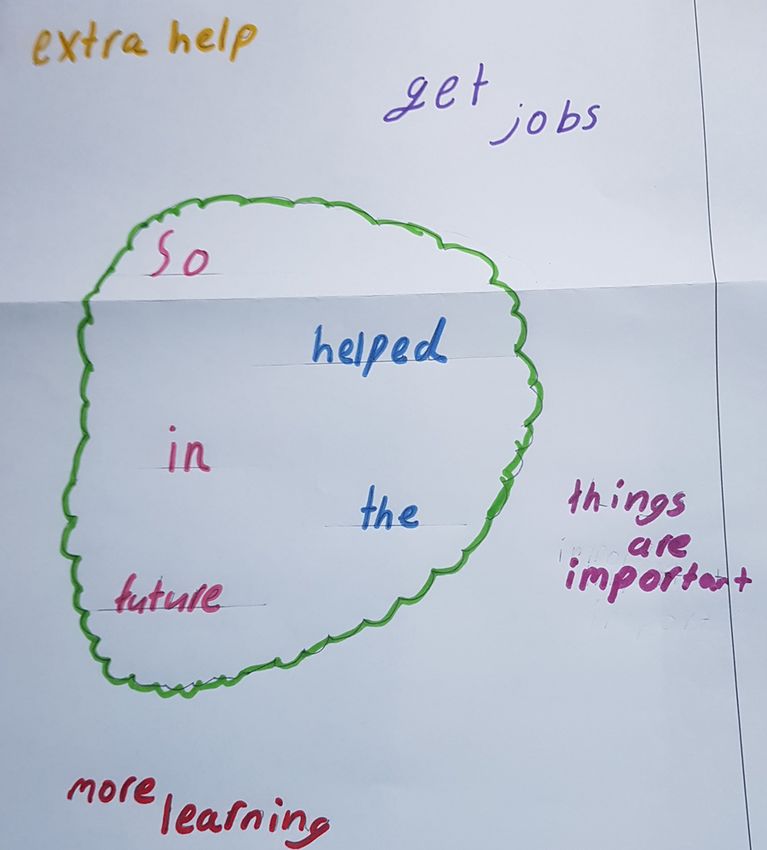 extra help
get jobs
So
helped
in
the
future
things
are
important
more learning